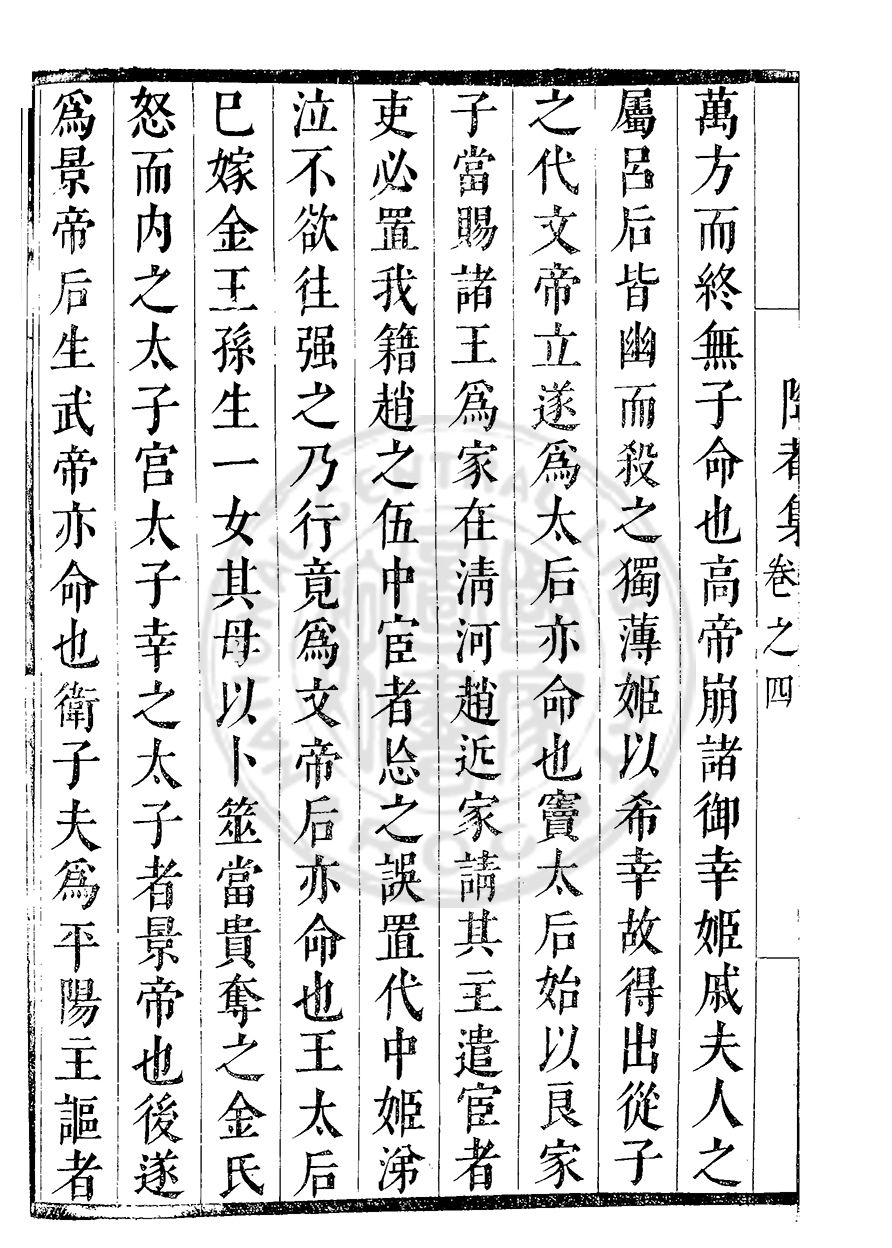 集卷之四
萬方而終無子命也高帝崩諸御幸姬戚夫人之
屬呂后皆幽而殺之獨薄姬以希幸故得出從子
之代文帝立遂為太后亦命也竇太后始以良家
子當賜諸王為家在清河趙近家請其主遣宦者
吏必置我籍趙之伍中宦者忘之誤置代中姬涕
泣不欲往强之乃行竟為文帝后亦命也王太后
巳嫁金王孫生一女其母以卜筮當貴奪之金氏
怒而内之太子宮太子幸之太子者景帝也後遂
為景帝后生武帝亦命也衛子夫為平陽主謳者